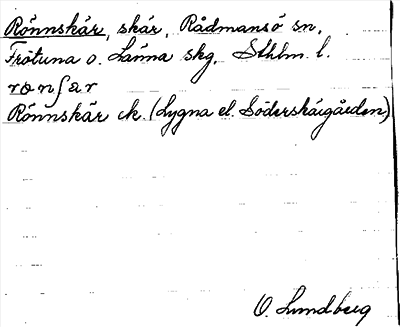 Rönnskär, skär, Rådmansö sn,
Frötuna o. Länna skg, Sthlm l.
rønʃar
Rönnskär ek. (Lygna el. Söderskärgården)
O. Lundberg